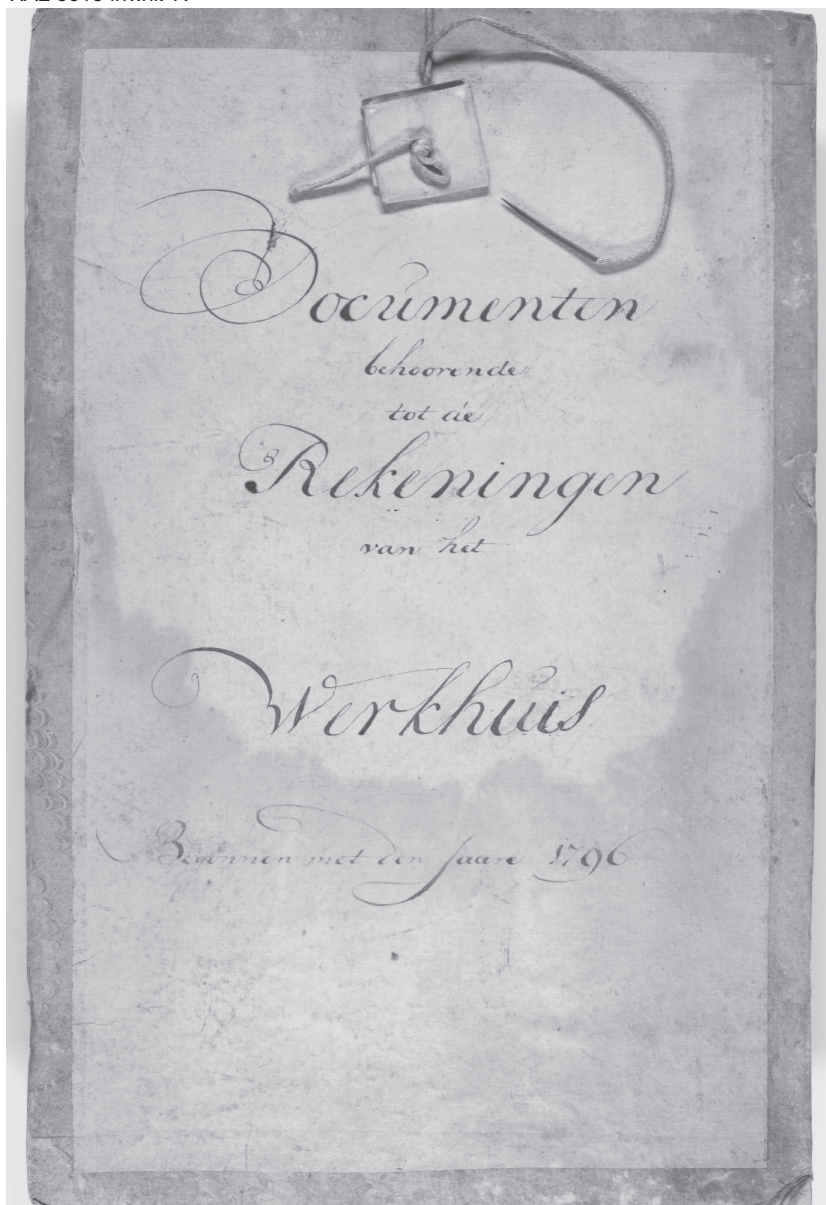 Documenten
behoorende
tot de
Rekeningen
van het
Werkhuis
Beginnen met den Jaare 1796